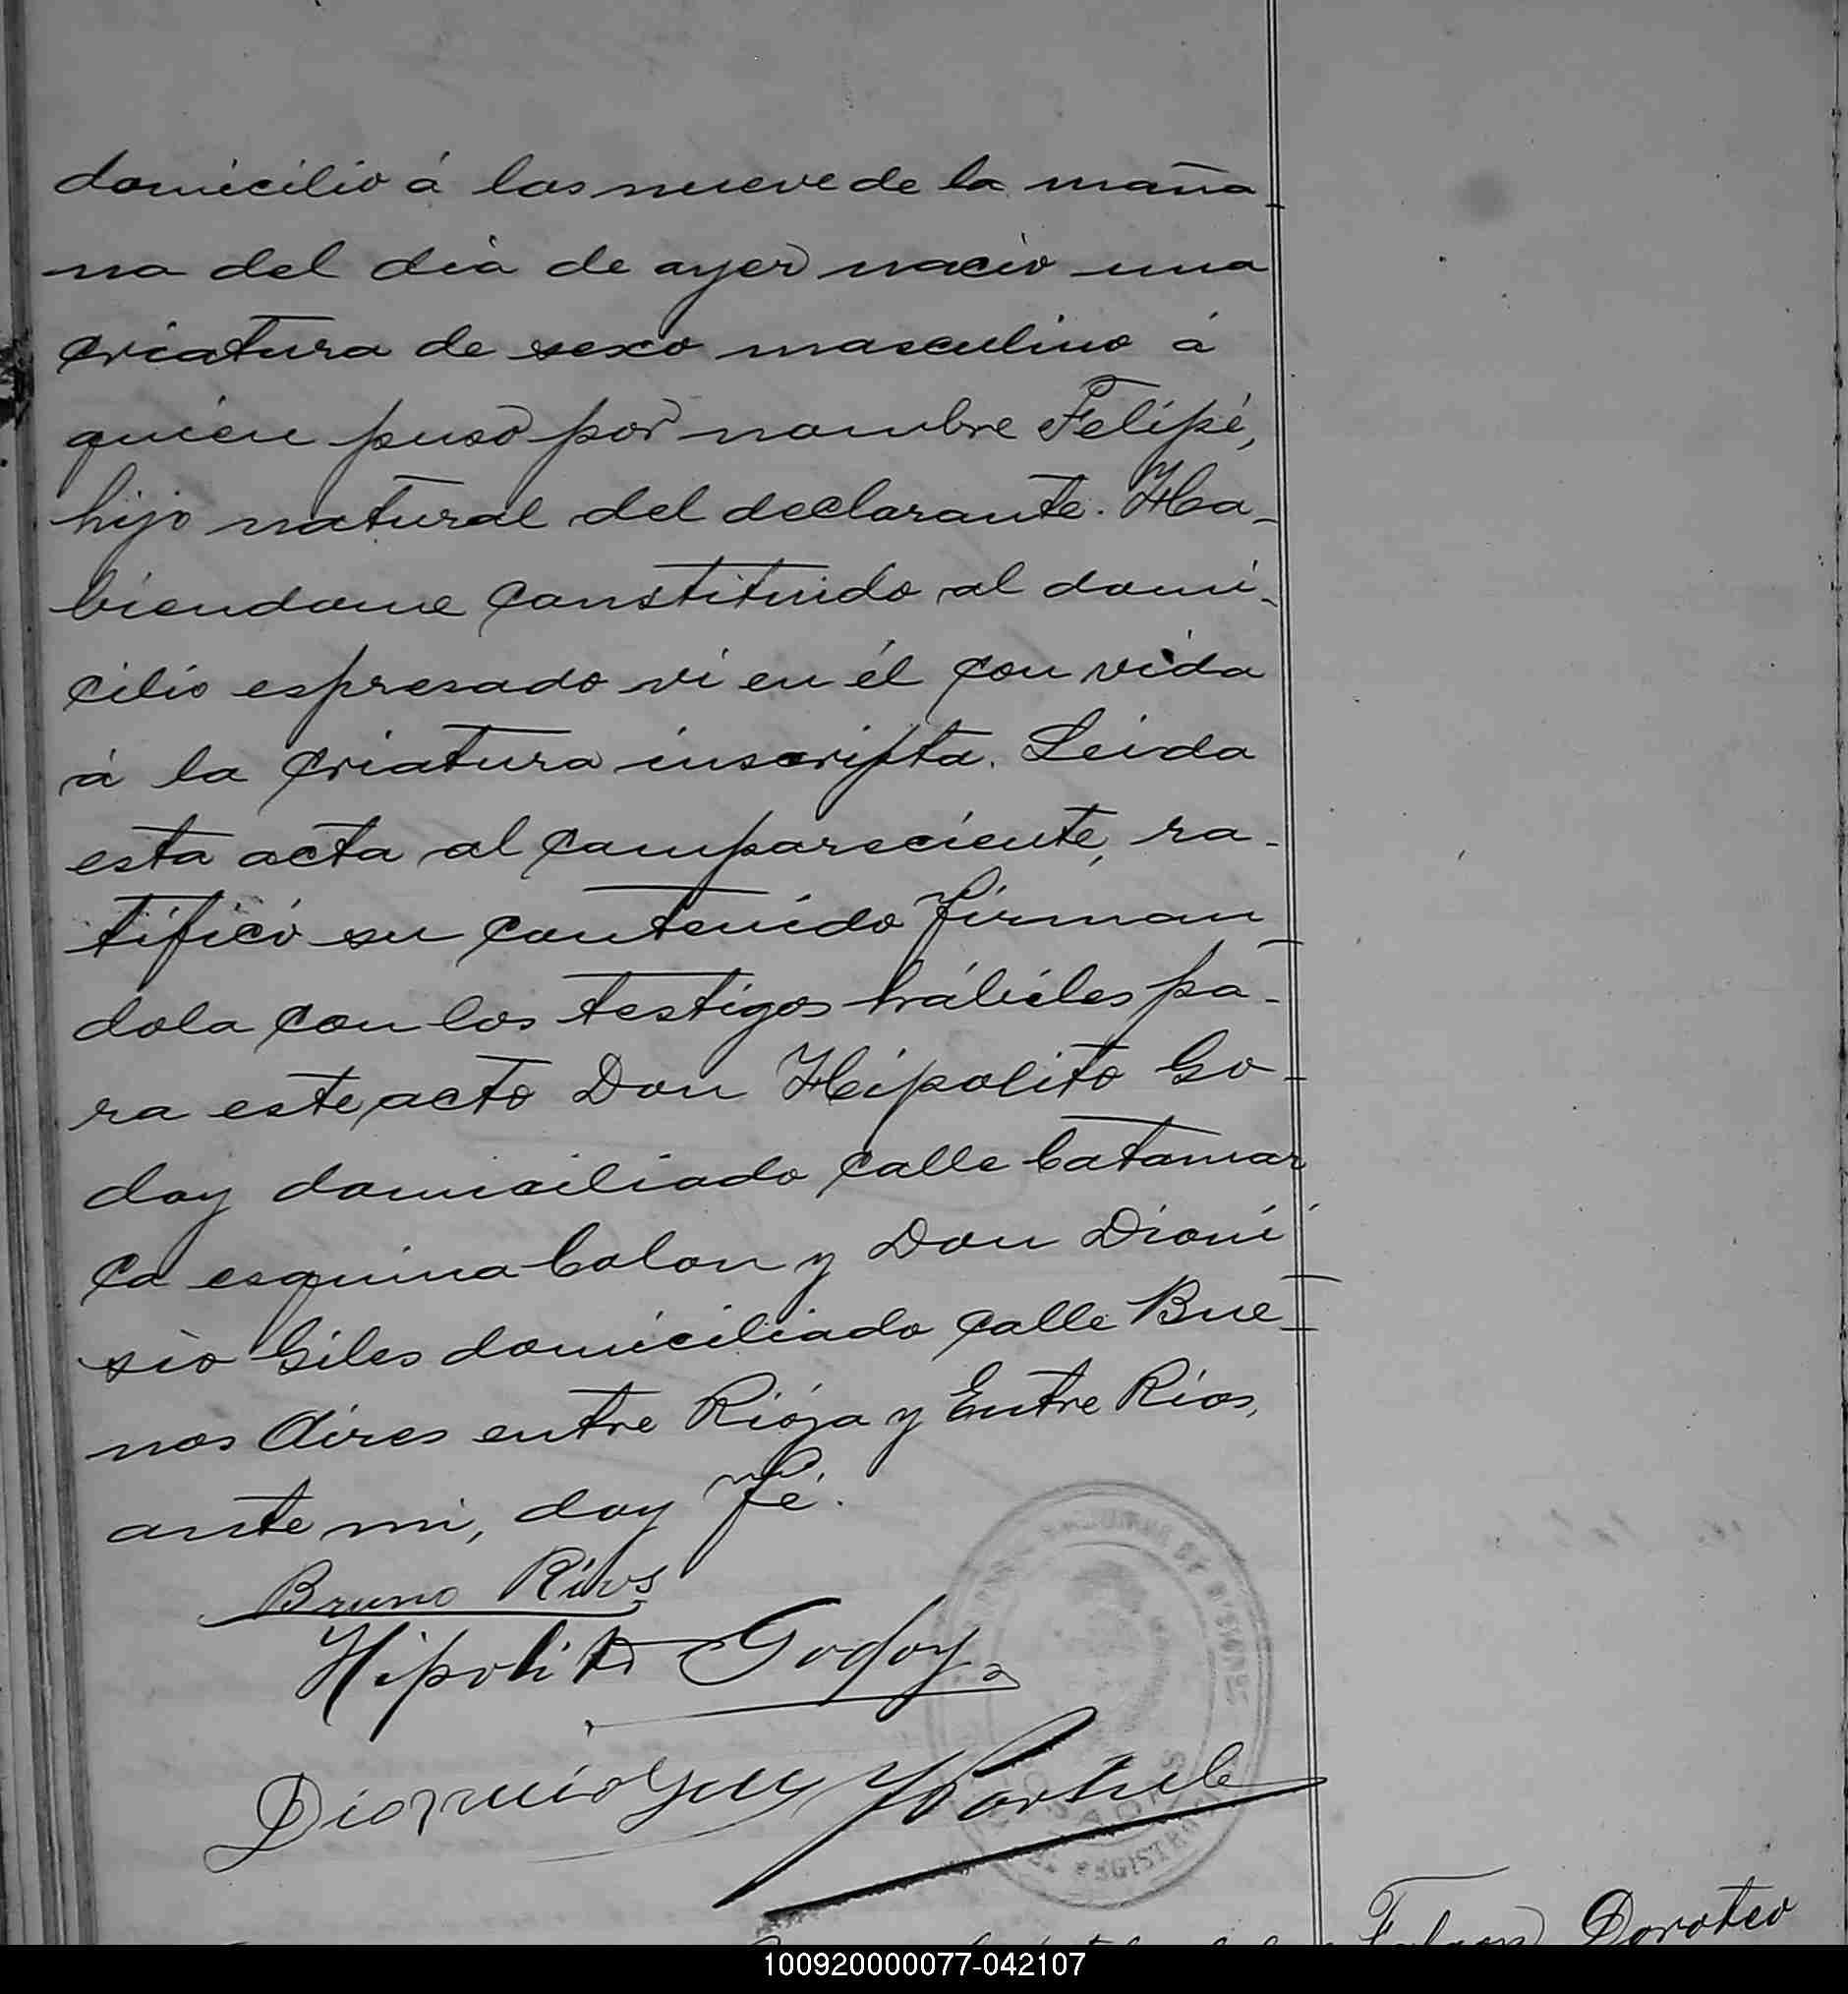 domicilio á las nueve de la maña
na del dia de ayer nació una
criatura de sexo masculino á
quien puso por nombre Felipé,
hijo natural del declarante. Ha-
biendome constituido al domi-
cilio espresado vi en él con vida
á la criatura inscripta. Leida
esta acta al compareciente, ra-
tificó su contenido firman
dola con los testigos hábiles pa-
ra este acto Don Hipolito Go-
doy domiciliado calle Catamar
ca esquina Colon y Don Dioni
sio Giles domiciliado calle Bue-
nos Aires entre Rioja y Entre Rios,
ante mi, doy fé.
Bruno Rios
Hipolito Godoy
Dionicio
REGISTRO
Doroteo
100920000077-042107